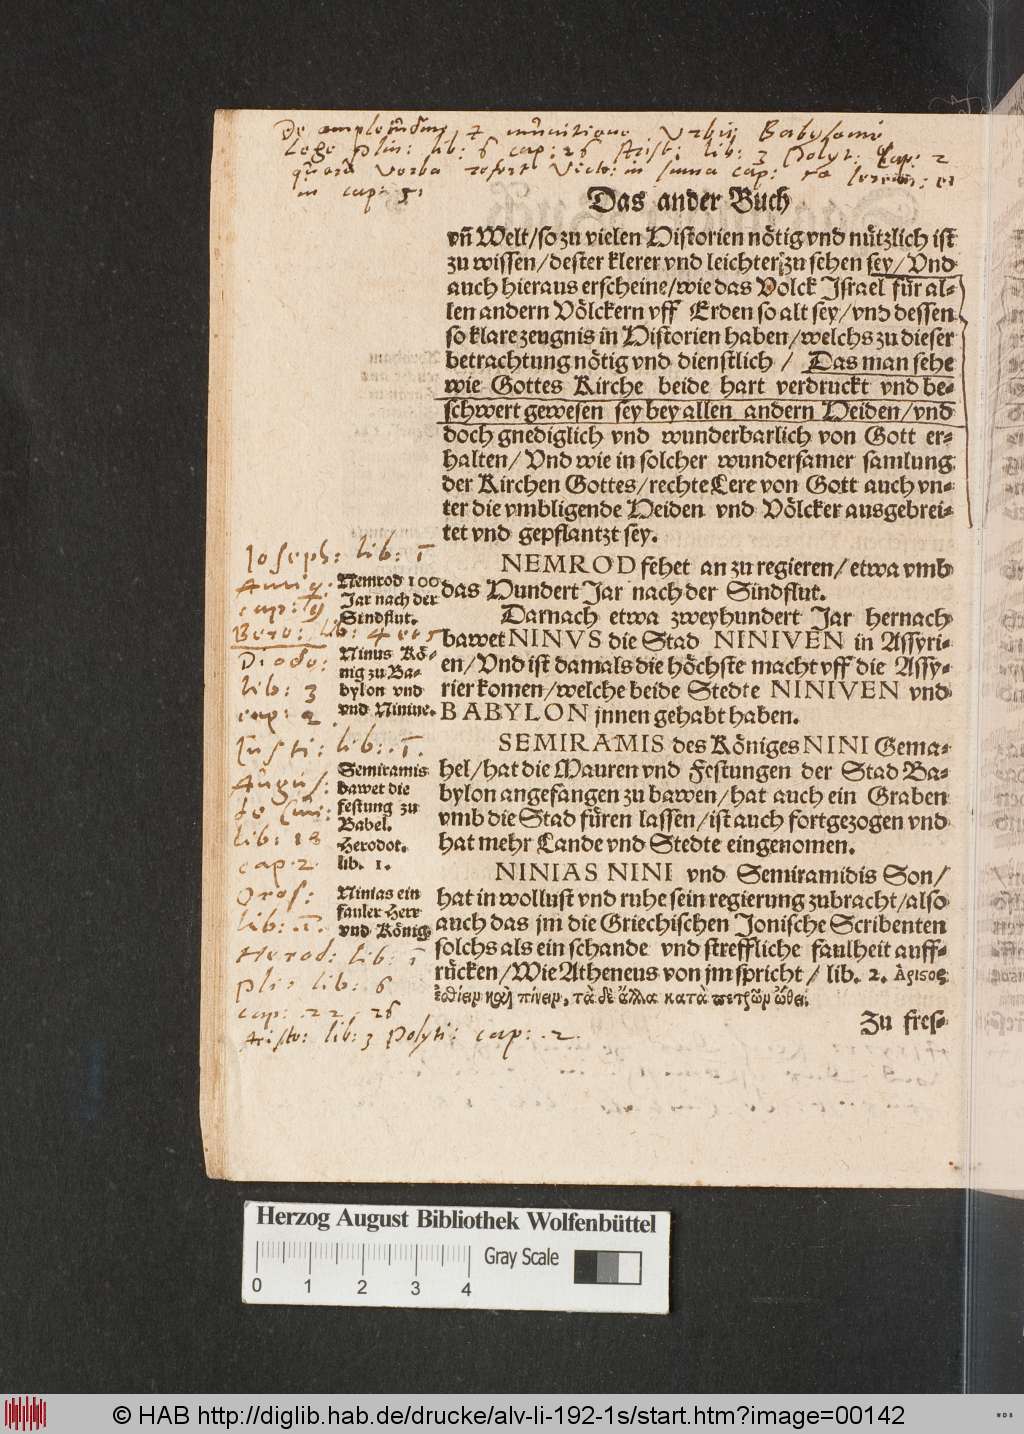 De amplitudine, et munitione Urbis Babyloniae
Lege Plin: lib: 6 cap: 26 Arist: lib: 3 Polyt: Cap: 2
verba refert Victo: in summa cap:
in cap: 51
Das ander Buch
vñ Welt/so zu vielen Historien nötig vnd nützlich ist
zu wissen/dester klerer vnd leichter zu sehen sey/Vnd
auch hieraus erscheine/wie das Volck Israel für al-
len andern Völckern vff Erden so alt sey/vnd dessen
so klare zeugnis in Historien haben/welchs zu dieser
betrachtung nötig vnd dienstlich / Das man sehe
wie Gottes Kirche beide hart verdruckt vnd be-
schwert gewesen sey bey allen andern Heiden/vnd
doch gnediglich vnd wunderbarlich von Gott er-
halten/Vnd wie in solcher wundersamer samlung
der Kirchen Gottes/rechte Lere von Gott auch vn-
ter die vmbligende Heiden vnd Völcker ausgebrei-
tet vnd gepflantzt sey.
NEMROD fehet an zu regieren/etwa vmb
das Hundert Jar nach der Sindflut.
Darnach etwa zweyhundert Jar hernach
bawet NINVS die Stad NINIVEN in Assyri-
en/Vnd ist damals die höchste macht vff die Assy-
rier komen/welche beide Stedte NINIVEN vnd
BABYLON jnnen gehabt haben.
SEMIRAMIS des Königes NINI Gema-
hel/hat die Mauren vnd Festungen der Stad Ba-
bylon angefangen zu bawen/hat auch ein Graben
vmb die Stad füren lassen/ist auch fortgezogen vnd
hat mehr Lande vnd Stedte eingenomen.
NINIAS NINI vnd Semiramidis Son/
hat in wollust vnd ruhe sein regierung zubracht/also
auch das jm die Griechischen Jonische Scribenten
solchs als ein schande vnd streffliche faulheit auff-
rücken/Wie Atheneus von jm spricht / lib. 2. Ἄριςος
ἐσθίειν καὶ πίνειν, τὰ δὲ ἄλλα κατὰ πετρῶν ὤθει.
Zu fres-
Joseph: lib: 1
Antiq:
cap: 9
Bero: lib: 4
Diodo:
lib: 3
cap: 2
Justi: lib: 1.
Augus:
de Civi:
lib: 18
cap 2
Oros:
lib: 2.
Herod: lib: 1
Pli: lib: 6
cap: 22, 26
Aristo: lib: 3 Polyti: cap: 2.
Nemrod 100
Jar nach der
Sindflut.
Ninus Kö-
nig zu Ba-
bylon vnd
vnd Niniue.
Semiramis
bawet die
festung zu
Babel.
Herodot.
lib. 1.
Ninias ein
fauler Herr
vnd König
Herzog August Bibliothek Wolfenbüttel
Gray Scale
0 1 2 3 4
© HAB http://diglib.hab.de/drucke/alv-li-192-1s/start.htm?image=00142
WDB